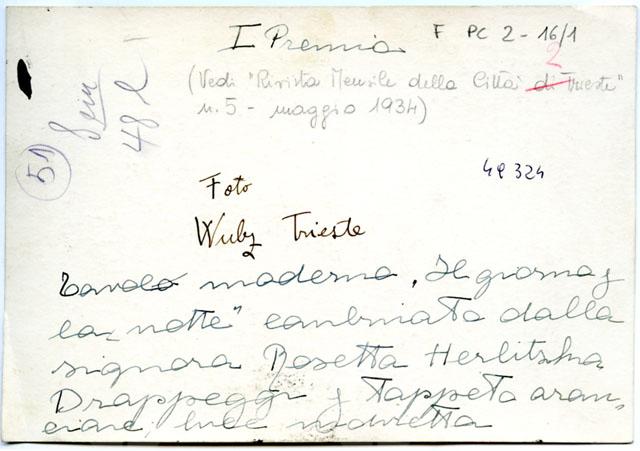 I Premio
F PC 2 - 16/1
2
(Vedi "Rivista Mensile della Città di Trieste"
n. 5 - maggio 1934)
48 l
51
49324
Foto
Wulz Trieste
Tavolo moderno "Il giorno e
la notte" combinato dalla
signora Rosetta Herlitzka
Drappeggi e tappeto aran-
ciare, luce indiretta